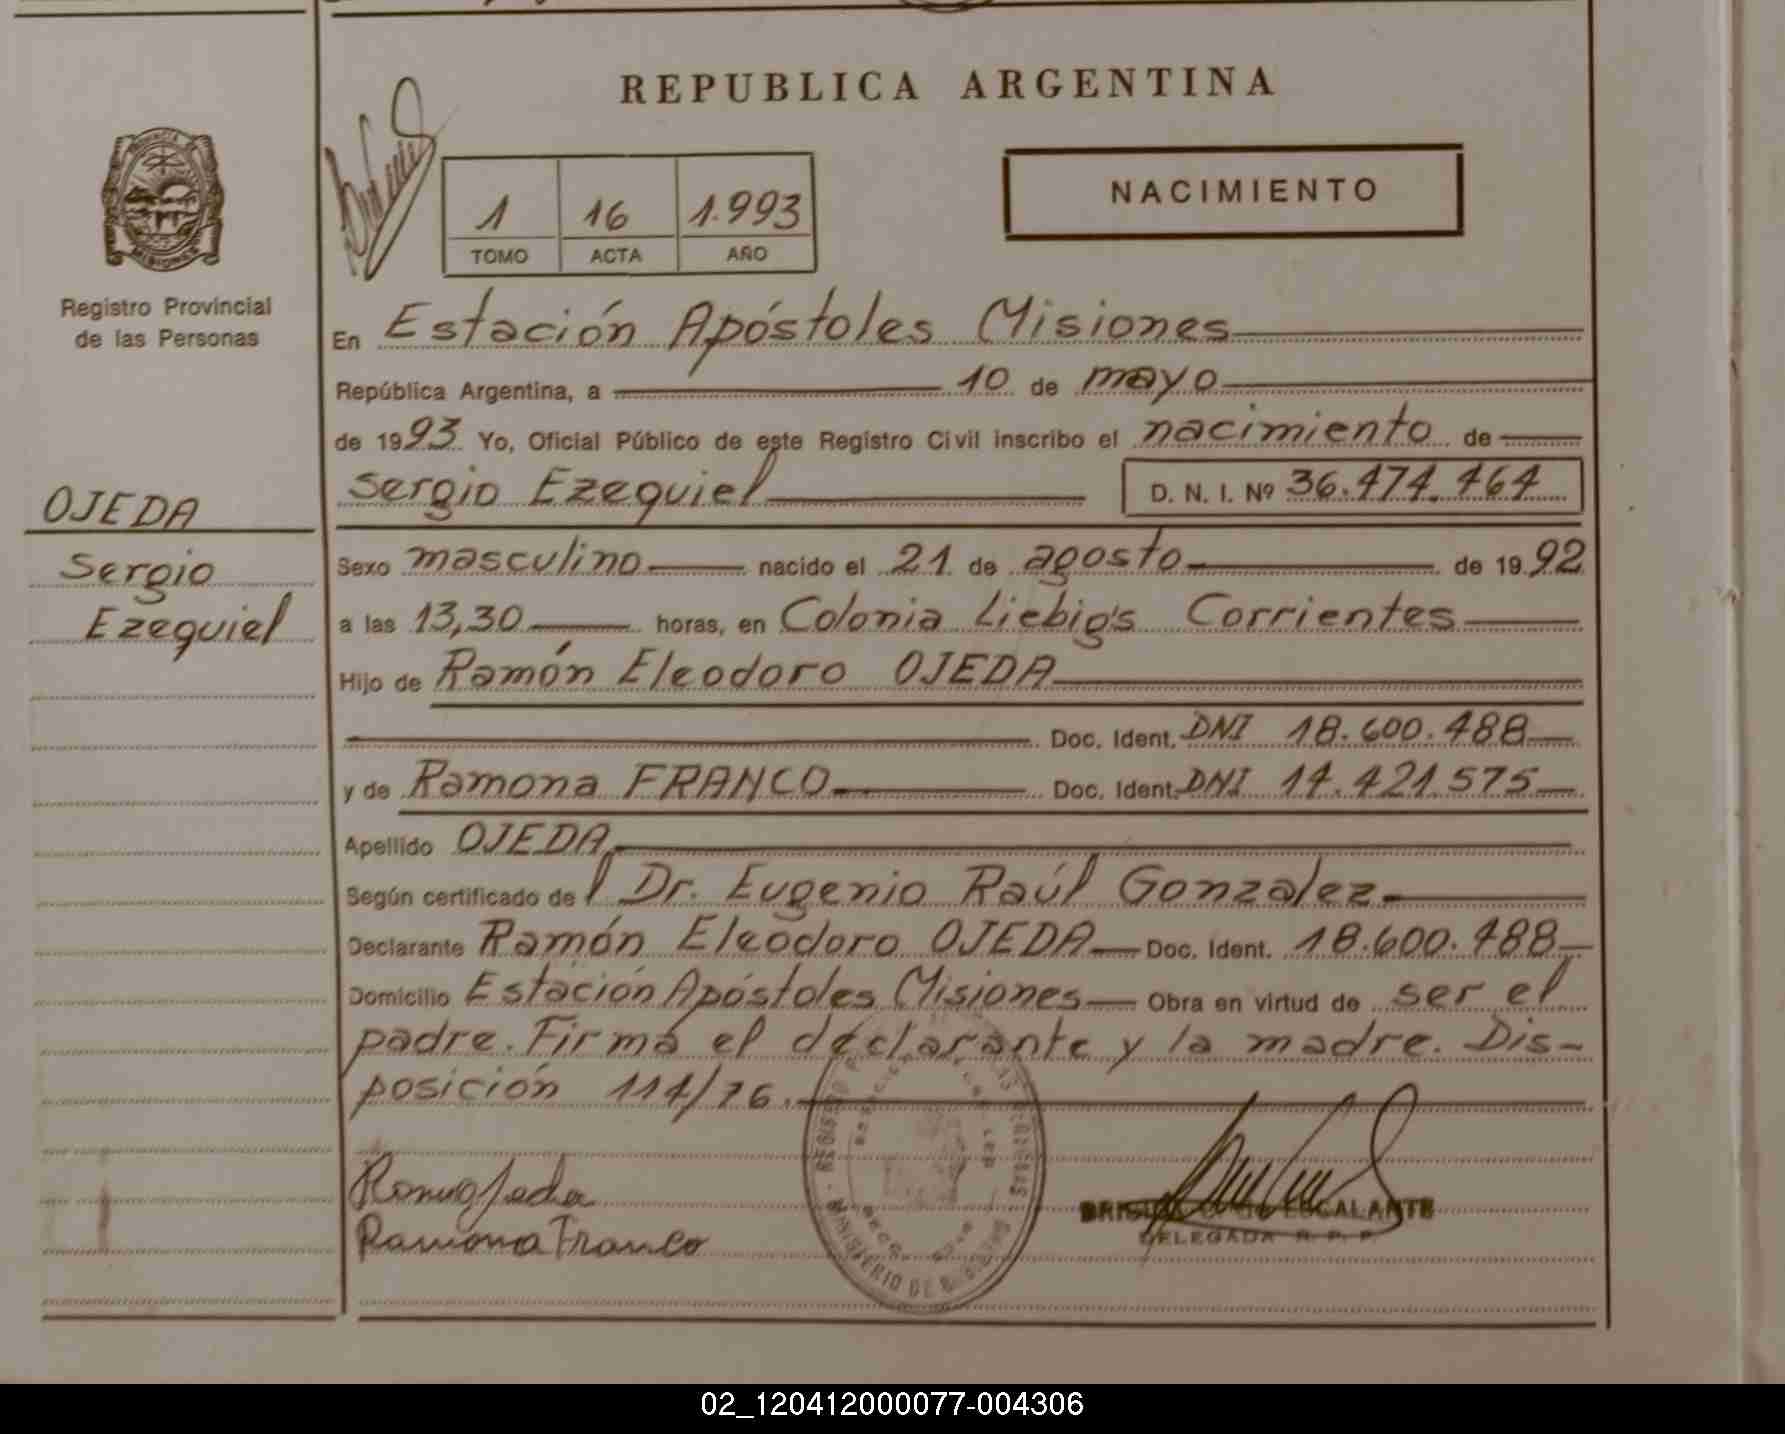 REPUBLICA ARGENTINA
NACIMIENTO
1 16 1.993
TOMO ACTA AÑO
PROVINCIA
MISIONES
Registro Provincial
de las Personas
OJEDA
Sergio
Ezequiel
En Estación Apóstoles Misiones
República Argentina, a 10 de mayo
de 1993 Yo, Oficial Público de este Registro Civil inscribo el nacimiento de
Sergio Ezequiel D. N. I. Nº 36.474.464
Sexo masculino nacido el 21 de agosto de 1992
a las 13,30 horas, en Colonia Liebig's Corrientes
Hijo de Ramón Eleodoro OJEDA
Doc. Ident. DNI 18.600.488
y de Ramona FRANCO Doc. Ident. DNI 14.421.575
Apellido OJEDA
Según certificado del Dr. Eugenio Raúl Gonzalez
Declarante Ramón Eleodoro OJEDA Doc. Ident. 18.600.488
Domicilio Estación Apóstoles Misiones Obra en virtud de ser el
padre. Firma el declarante y la madre. Dis-
posición 114/76.
Ramona Franco
ESCALANTE
DELEGADA R. P. P.
REGISTRO
MINISTERIO DE
02_120412000077-004306